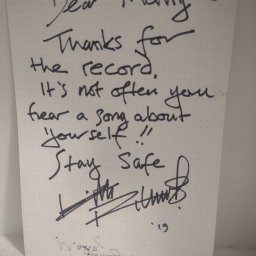 Dear
Thanks for
the record,
It's not often you
hear a song about
'yourself'!!
Stay Safe
'19